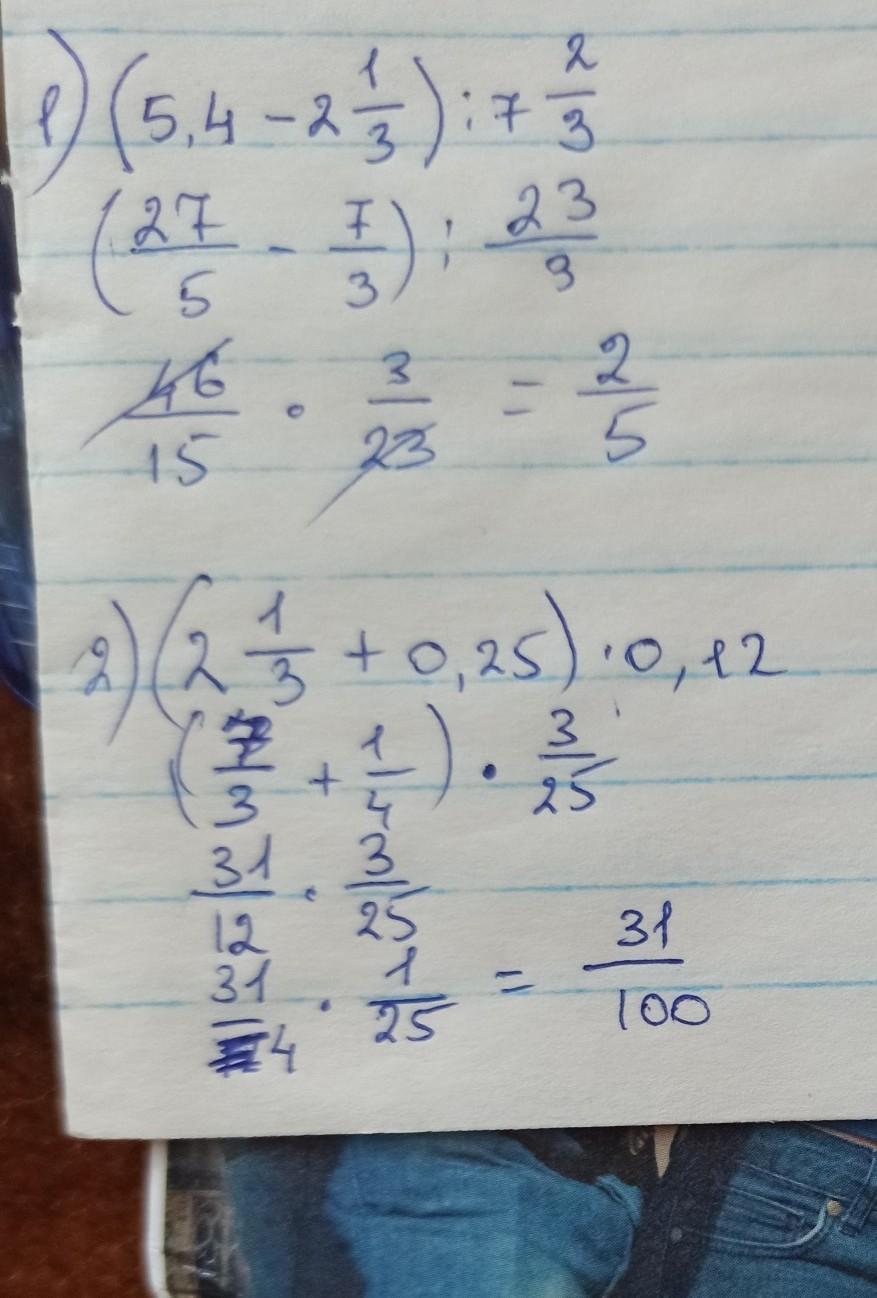 1) (5,4 - 2 1/3) : 7 2/3
(27/5 - 7/3) : 23/3
46/15 · 3/23 = 2/5
2) (2 1/3 + 0,25) · 0,12
(7/3 + 1/4) · 3/25
31/12 · 3/25
31/4 · 1/25 = 31/100